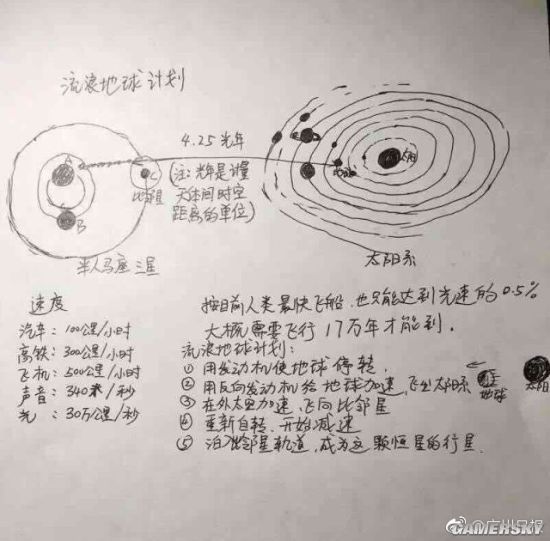 流浪地球计划
4.25 光年
(注:光年是计量
天体间时空
距离的单位)
A
B
C
比邻星
半人马座三星
地球
太阳
太阳系
速度
汽车:100公里/小时
高铁:300公里/小时
飞机:500公里/小时
声音:340米/秒
光:30万公里/秒
按目前人类最快飞船,也只能达到光速的0.5%
大概需要飞行17万年才能到.
流浪地球计划:
① 用发动机使地球停转.
② 用反向发动机给地球加速,飞出太阳系
③ 在外太空加速,飞向比邻星
④ 重新自转,开始减速
⑤ 泊入比邻星轨道,成为这颗恒星的行星.
地球
太阳
@广州日报
GAMERSKY